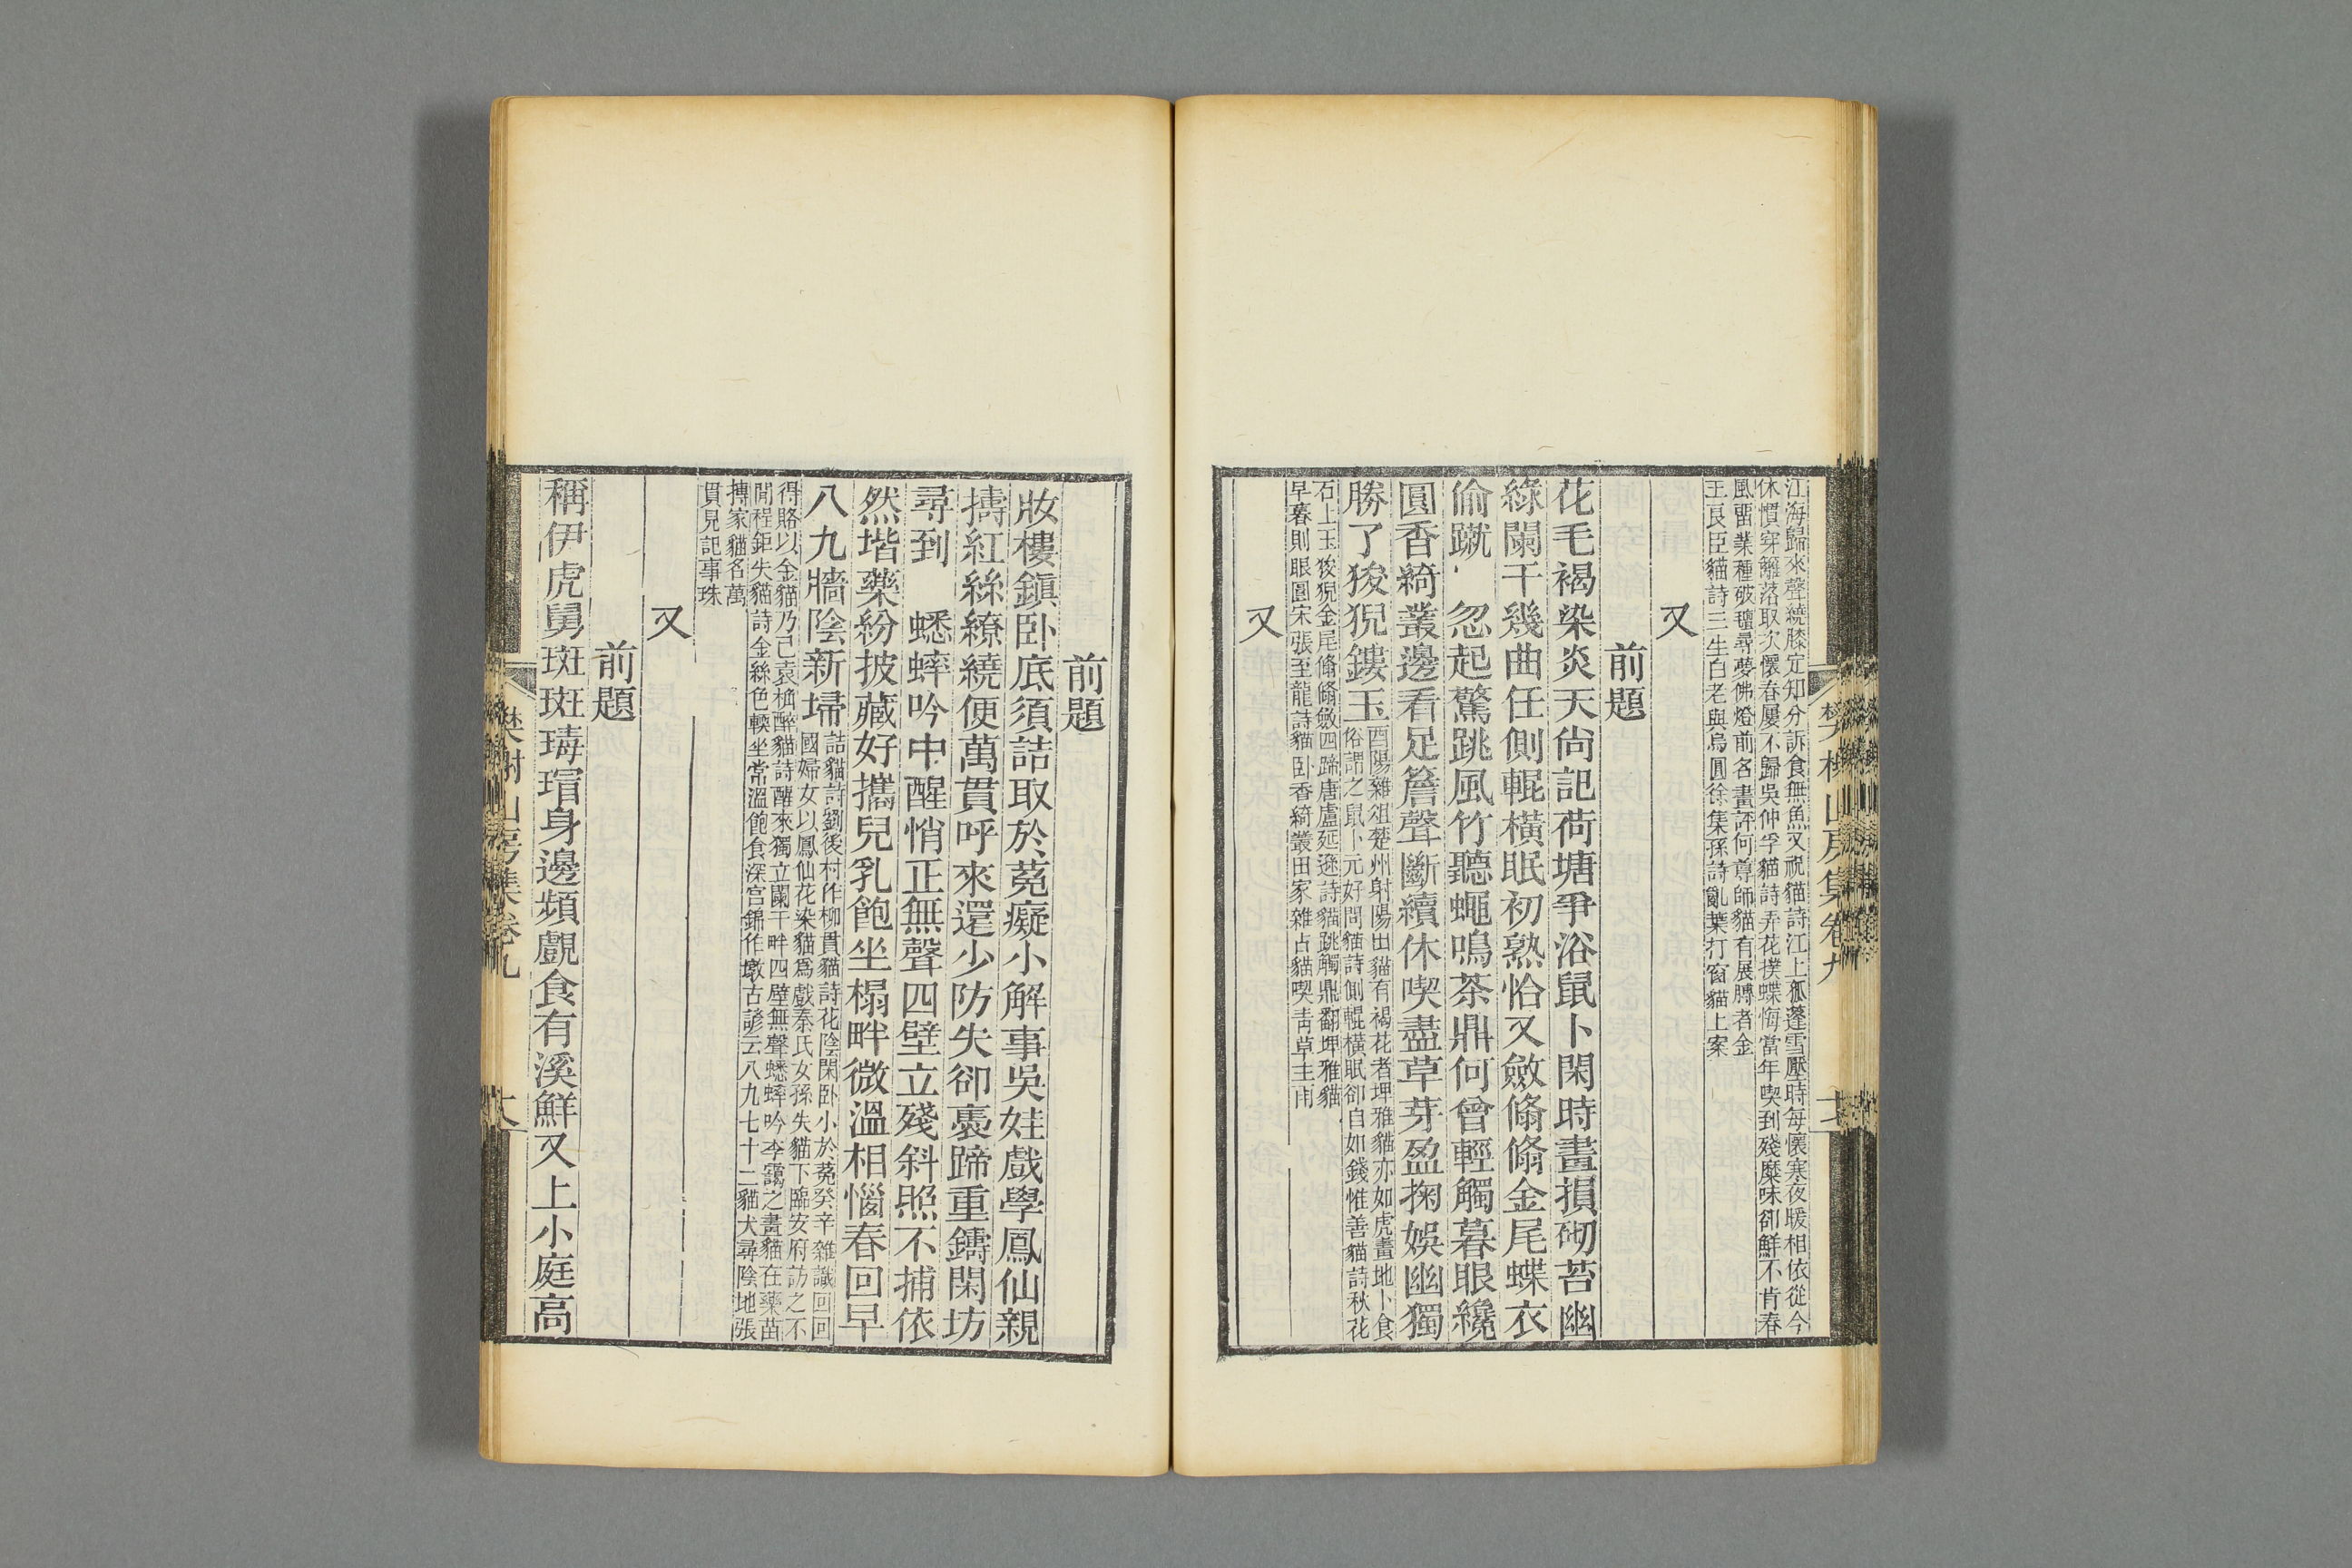 江海歸來聲繞膝定知分訴食無魚又祝貓詩江上孤蓬雪壓時每懷寒夜暖相依從今
休慣穿籬落取次懷春屢不歸吳仲孚貓詩弄花撲蝶悔當年喫到殘糜味卻鮮不肯春
風畱業種破氊尋夢佛燈前名畫評何尊師貓有展膊者金
王良臣貓詩三生白老與烏圓徐集孫詩亂葉打窗貓上案
又
前題
花毛褐染炎天尙記荷塘爭浴鼠卜閑時畫損砌苔幽
綠闌干幾曲任側輥橫眠初熟恰又斂翛翛金尾蝶衣
偷蹴 忽起驚跳風竹聽蠅鳴茶鼎何曾輕觸暮眼纔
圓香綺叢邊看足簷聲斷續休喫盡草芽盈掬娛幽獨
勝了狻猊鏤玉
酉陽雜俎楚州射陽出貓有褐花者埤雅貓亦如虎畫地卜食
俗謂之鼠卜元好問貓詩側輥橫眠卻自如錢惟善貓詩秋花
石上玉狻猊金尾翛翛斂四蹄唐盧延遜詩貓跳觸鼎翻埤雅貓
早暮則眼圓宋張至龍詩貓卧香綺叢田家雜占貓喫青草主雨
又
樊榭山房集卷九
前題
妝樓鎮卧底須詰取於菟癡小解事吳娃戲學鳳仙親
擣紅絲繚繞便萬貫呼來還少防失卻裹蹄重鑄閑坊
尋到 蟋蟀吟中醒悄正無聲四壁立殘斜照不捕依
然堦藥紛披藏好攜兒乳飽坐榻畔微溫相惱春回早
八九牆陰新埽
詰貓詩劉後村作柳貫貓詩花陰閑卧小於菟癸辛雜識回回
國婦女以鳳仙花染貓爲戲秦氏女孫失貓下臨安府訪之不
得賂以金貓乃已袁桷醉貓詩醒來獨立闌干畔四壁無聲蟋蟀吟李靄之畫貓在藥苗
閒程鉅失貓詩金絲色輭坐常溫飽食深宮錦作墩古諺云八九七十二貓犬尋陰地張
摶家貓名萬
貫見記事珠
又
前題
稱伊虎舅斑斑瑇瑁身邊頻覷食有溪鮮又上小庭高
樊榭山房集卷九